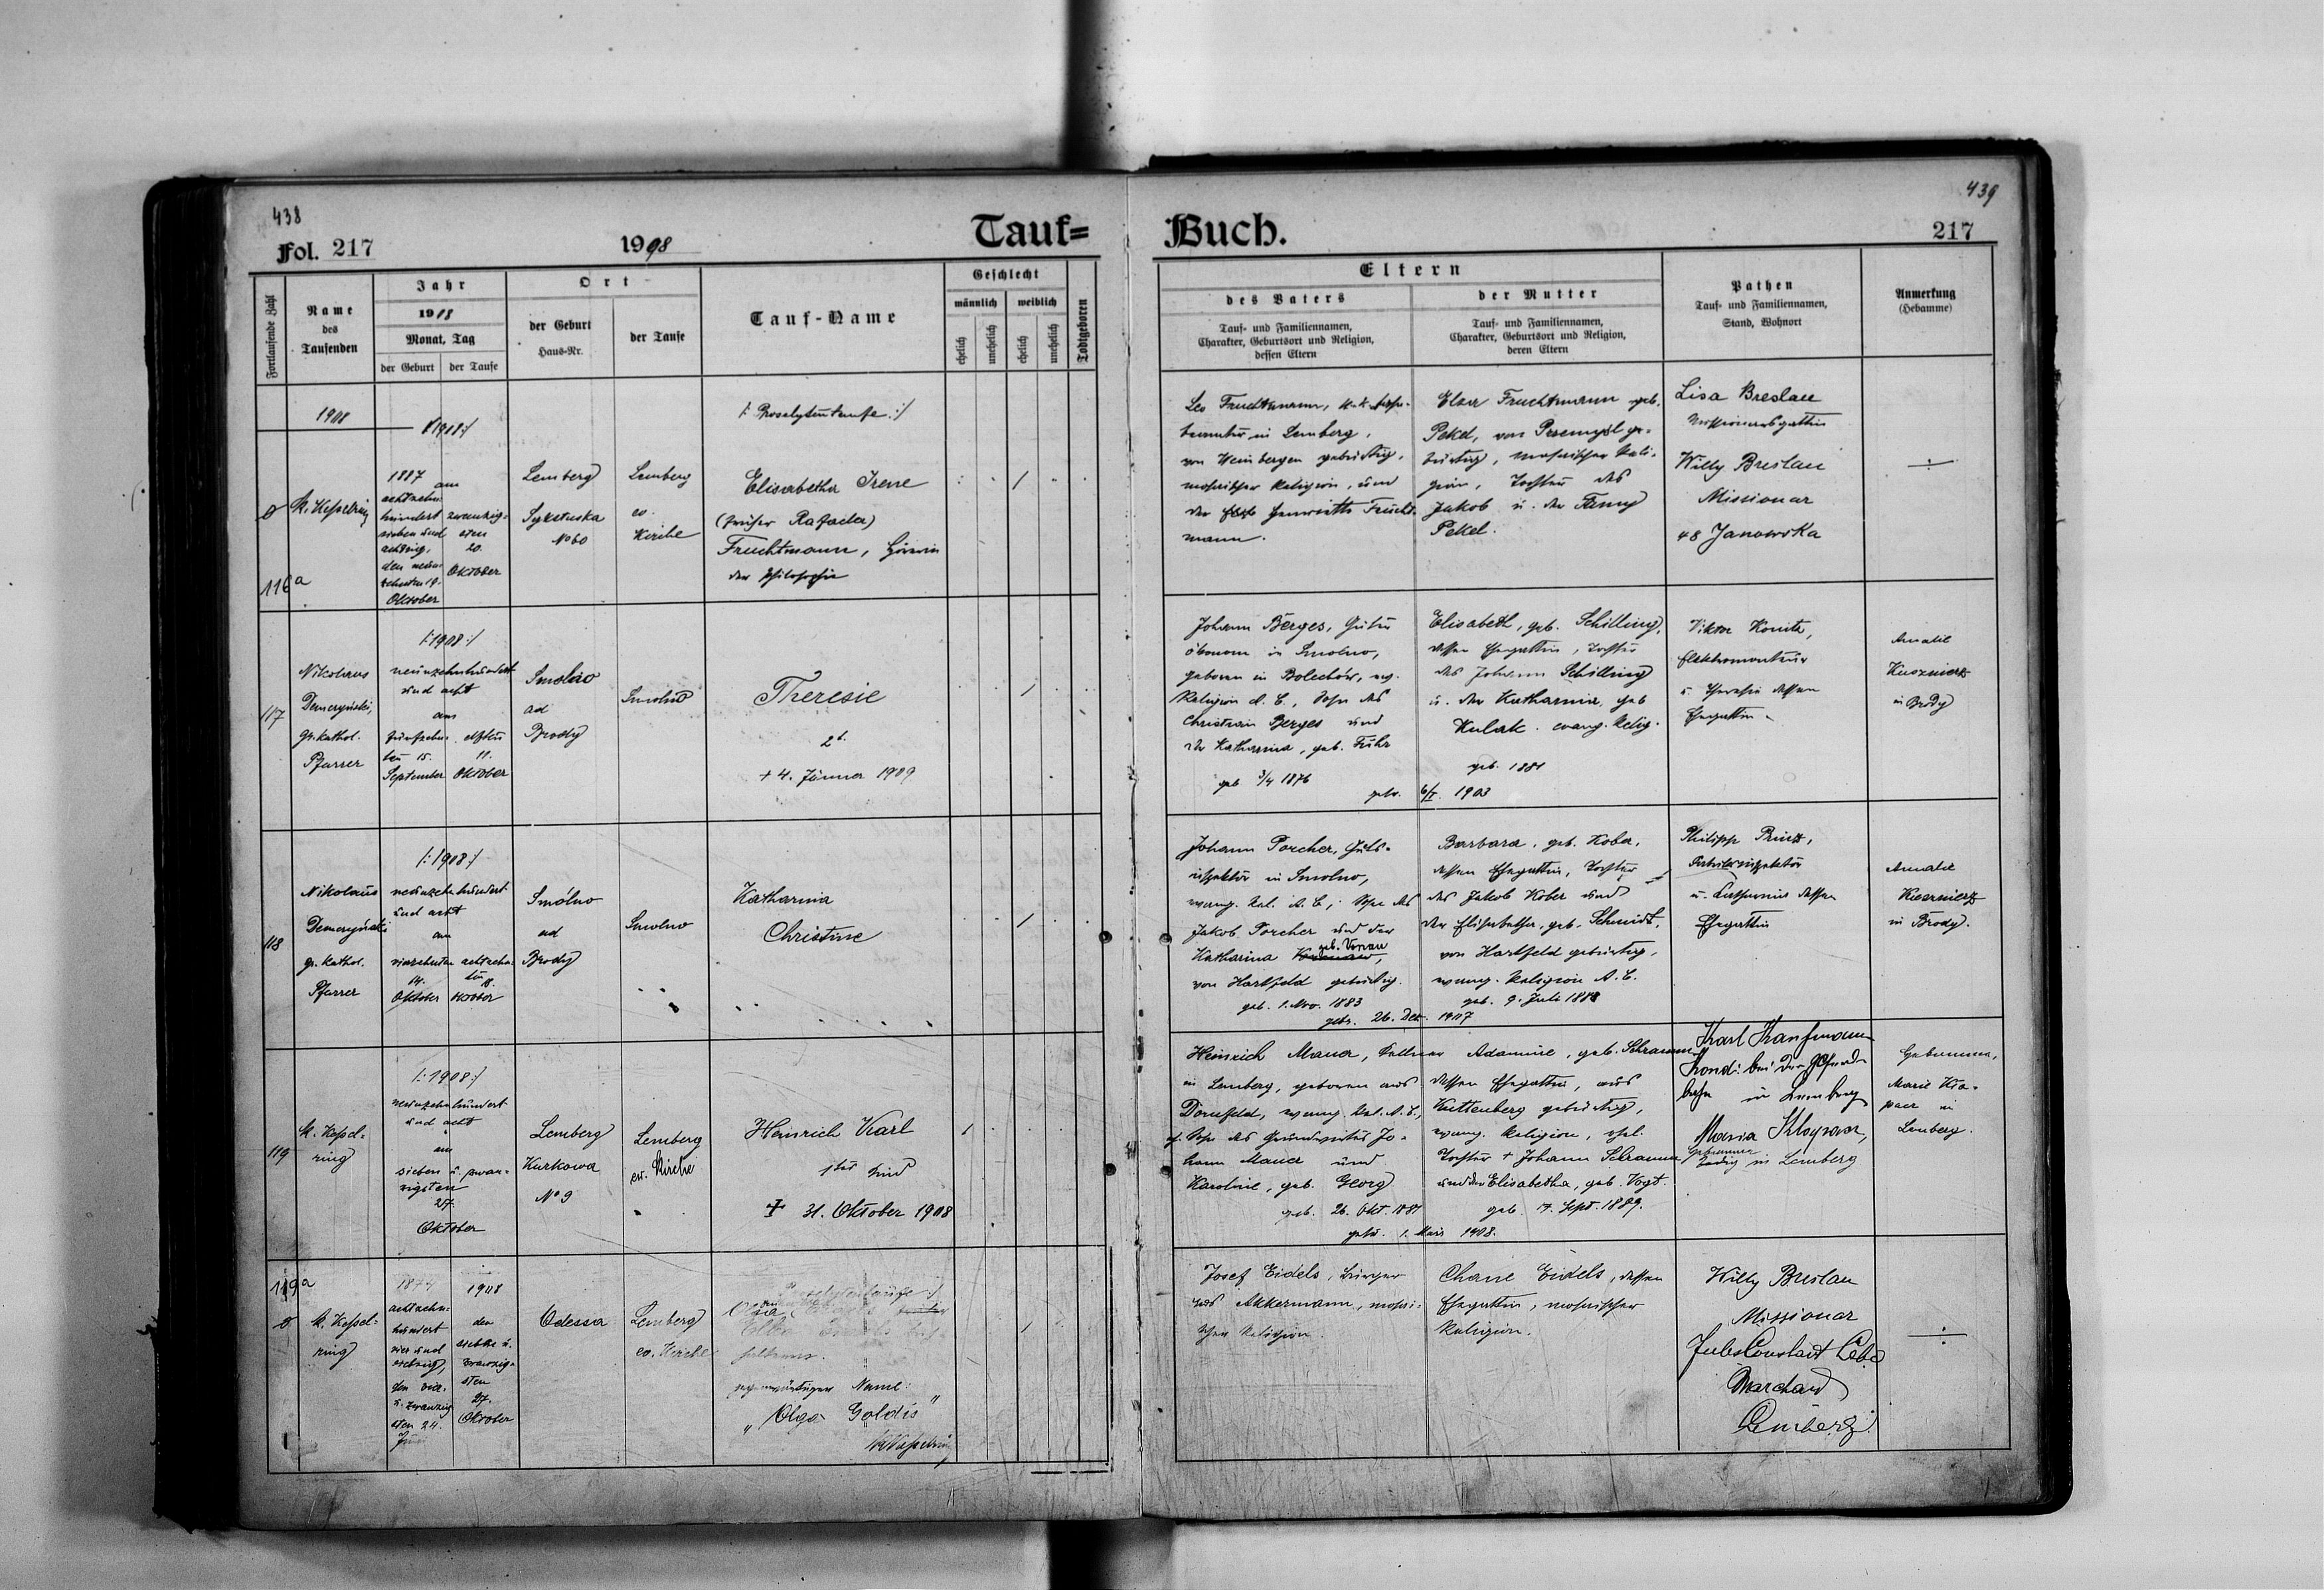 438
439
Fol. 217
1908
Tauf=
Buch.
217
Fortlaufende Zahl
Name
des
Taufenden
Jahr
1908
Monat, Tag
der Geburt
der Taufe
Ort
der Geburt
Haus-Nr.
der Taufe
Tauf-Name
Geschlecht
männlich
weiblich
ehelich
unehelich
ehelich
unehelich
Todtgeboren
Eltern
des Vaters
Tauf- und Familiennamen,
Charakter, Geburtsort und Religion,
dessen Eltern
der Mutter
Tauf- und Familiennamen,
Charakter, Geburtsort und Religion,
deren Eltern
Pathen
Tauf- und Familiennamen,
Stand, Wohnort
Anmerkung
(Hebamme)
1908
/:1908:/
116a
M. Kesselring
1887
achtzehn-
hundert
sieben und
achtzig,
den neun-
zehnten 19.
Oktober
am
zwanzig-
sten
20.
Oktober
Lemberg
Sykstuska
No 60
Lemberg
ev.
Kirche
/: Proselytentaufe :/
Elisabetha Irene
(früher Rafaela)
Fruchtmann, Hörerin
der Philosophie
Leo Fruchtmann, k. k.
in Lemberg,
von Weinbergen gebürtig,
mosaischer Religion, und
der Henriette Frucht-
mann.
Elsa Fruchtmann geb.
Pekel, von Przemysl ge-
bürtig, mosaischer Reli-
gion, Tochter des
Jakob u. der Fanny
Pekel.
Lisa Breslau
Missionarsgattin
Willy Breslau
Missionar
48 Janowska
117
Nikolaus
Demczyński,
gr. kathol.
Pfarrer
/:1908:/
neunzehnhundert
und acht
am
fünfzehn-
ten 15.
September
elften
11.
Oktober
Smolno
ad
Brody
Smolno
Theresie
2t.
+ 4. Jänner 1909
Johann Berges, Güter
ökonom in Smolno,
geboren in Bolechów, ev.
Religion A. C., Sohn des
Christian Berges und
der Katharina, geb. Fuhr
geb 3/4 1876
Elisabeth, geb. Schilling,
dessen Ehegattin, Tochter
des Johann Schilling
u. der Katharina, geb
Kulak. evang. Relig.
geb. 1881
getr. 6/I. 1903
Viktor Konita,
Elektromonteur
u. Theresie dessen
Ehegattin
Amalie
in Brody
118
Nikolaus
Demczyński
gr. kathol.
Pfarrer
/:1908:/
neunzehnhundert
und acht
am
vierzehnten
14.
Oktober
achtzehn-
ten 18.
Oktober
Smólno
ad
Brody
Smolno
Katharina
Christine
Johann Porcher, Guts-
inspektor in Smolno,
evang. Rel. A. C., Sohn des
Jakob Porcher und der
Katharina geb. Vonau,
von Hartfeld gebürtig.
geb. 1. Nov. 1883
Barbara, geb. Kober,
dessen Ehegattin, Tochter
des Jakob Kober und
der Elisabetha, geb. Schmidt,
von Hartfeld gebürtig,
evang. Religion A. C.
geb. 9. Juli 1888
getr. 26. Dez. 1907
Philipp Prinz,
u. Katharina dessen
Ehegattin
Amalie
in Brody.
119
M. Kessel-
ring
/:1908:/
neunzehnhundert
und acht
am
sieben u. zwan-
zigsten
27.
Oktober
Lemberg
Kurkowa
No 9
Lemberg
ev. Kirche
Heinrich Karl
1tes Kind
+ 31. Oktober 1908
Heinrich Mauer, Kellner
in Lemberg, geboren aus
Dornfeld, evang. Rel. A. C.,
Sohn des Grundwirtes Jo-
hann Mauer und
Karoline, geb. Georg
geb. 26. Okt. 1881
Adamine, geb. Schramm
dessen Ehegattin, aus
Kuttenberg gebürtig,
evang. Religion, ehel.
Tochter + Johann Schramm
und der Elisabetha, geb. Vogt.
geb. 17. Sept. 1889.
getr. 1. März 1908.
Karl Kaufmann
in Lemberg
Maria Klapacz,
Hebamme
ledig in Lemberg
Hebamme,
Marie Kla-
pacz in
Lemberg.
119a
M. Kessel-
ring
1874
achtzehn-
hundert
vier und
siebzig,
den vier-
u. zwanzig
sten 24.
Juni
1908
den
siebte u.
zwanzig-
sten
27.
Oktober
Odessa
Lemberg
ev. Kirche
Proselytentaufe :/
Olga
gegenwärtiger Name:
"Olga Goldis"
M. Kesselring
Josef Eidels, Bürger
aus Akkermann, mosai-
scher Religion.
Chane Eidels, dessen
Ehegattin, mosaischer
Religion.
Willy Breslau
Missionar
Jules Constant
Marchand
Lemberg